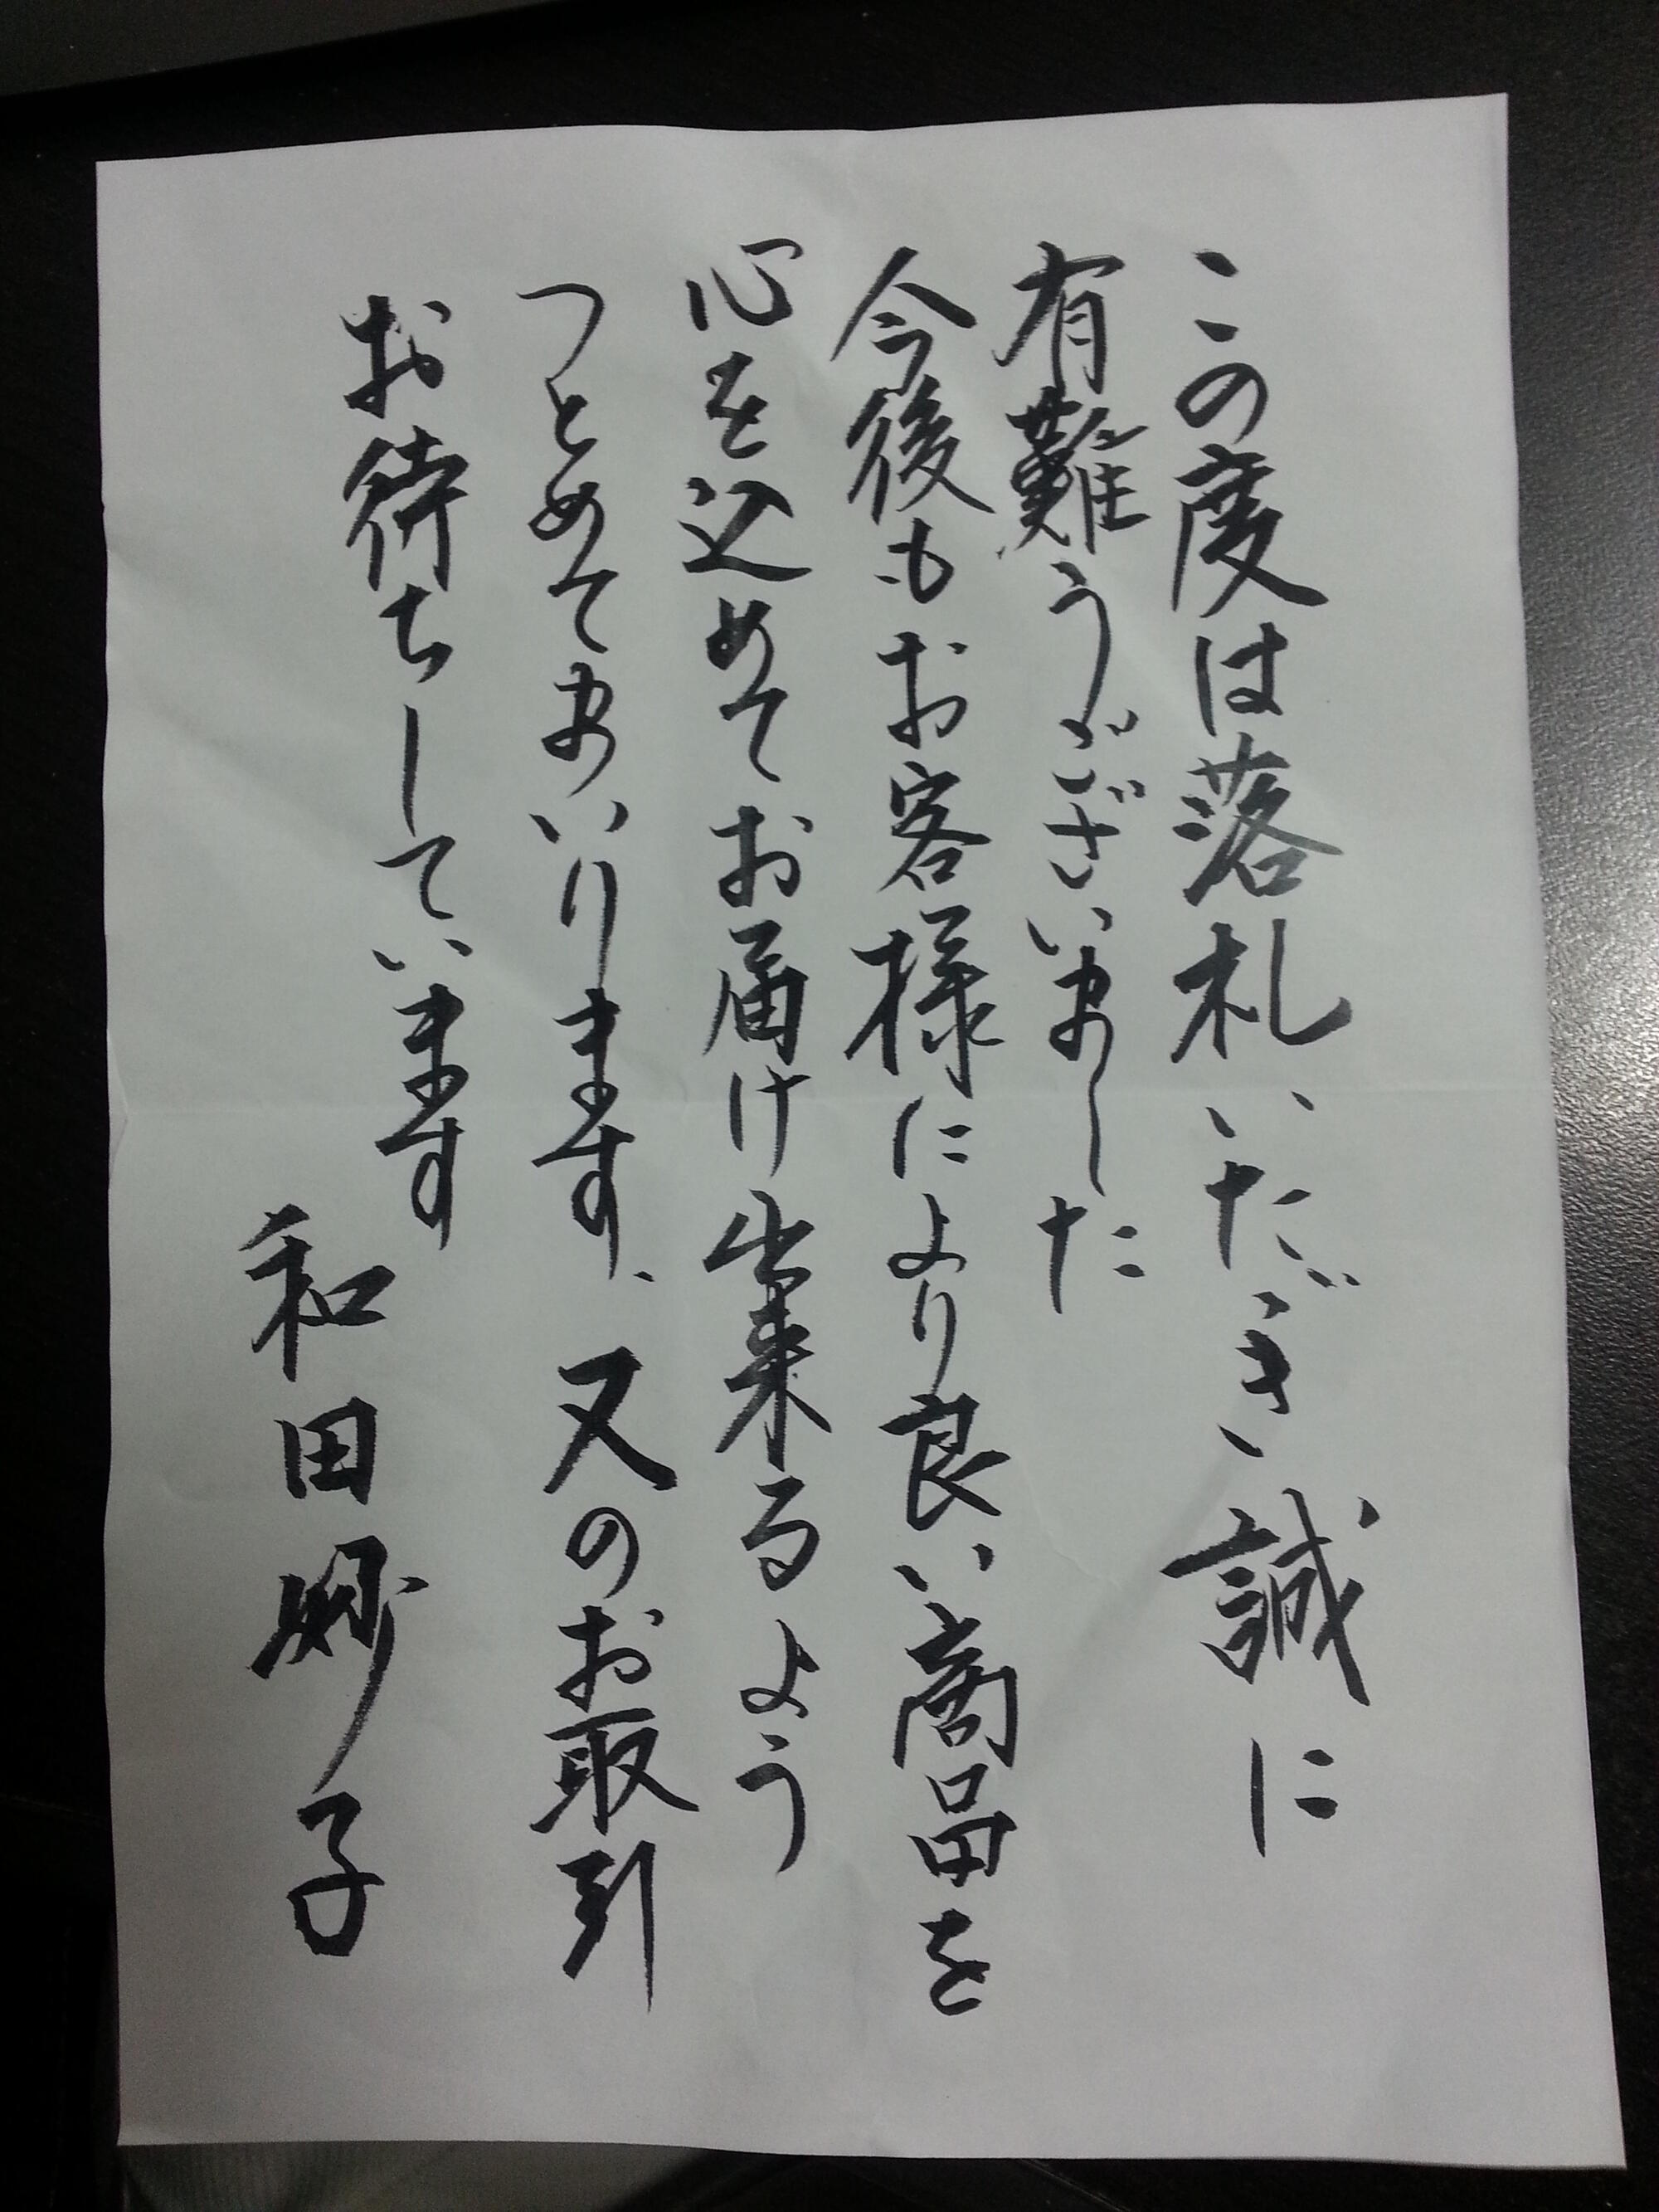 この度は落札いただき誠に
有難うございました
今後もお客様により良い商品を
心を込めてお届け出来るよう
つとめてまいります、又のお取引
お待ちしています
和田妙子